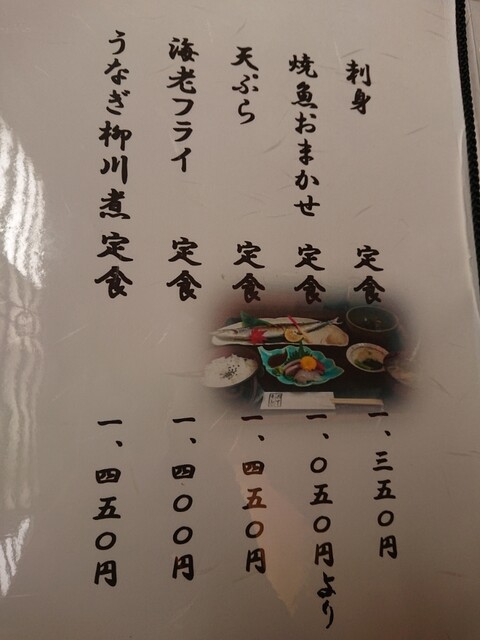 刺身定食 一、三五〇円
焼魚おまかせ定食 一、〇五〇円より
天ぷら定食 一、四五〇円
海老フライ定食 一、四〇〇円
うなぎ柳川煮定食 一、四五〇円